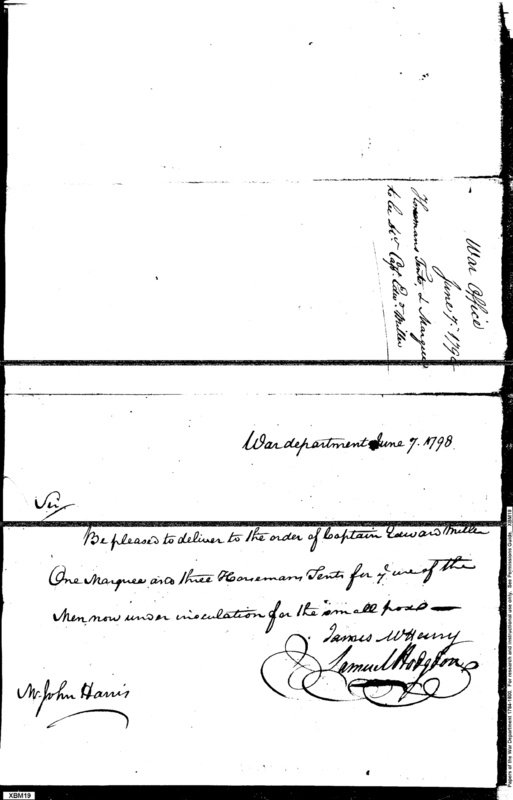 War Office
June 7. 1798
Horsemans Tents, & Marquee
to be dd. Capt. Edwd. Miller
War department June 7. 1798
Sir
Be pleased to deliver to the order of Captain Edward Miller
One Marquee and three Horsemans Tents for ye use of the
Men now under inoculation for the small pox —
James McHenry
Samuel Hodgdon
Mr. John Harris
Papers of the War Department 1784-1800. For research and instructional use only. See Permissions Guide. XBM19
XBM19